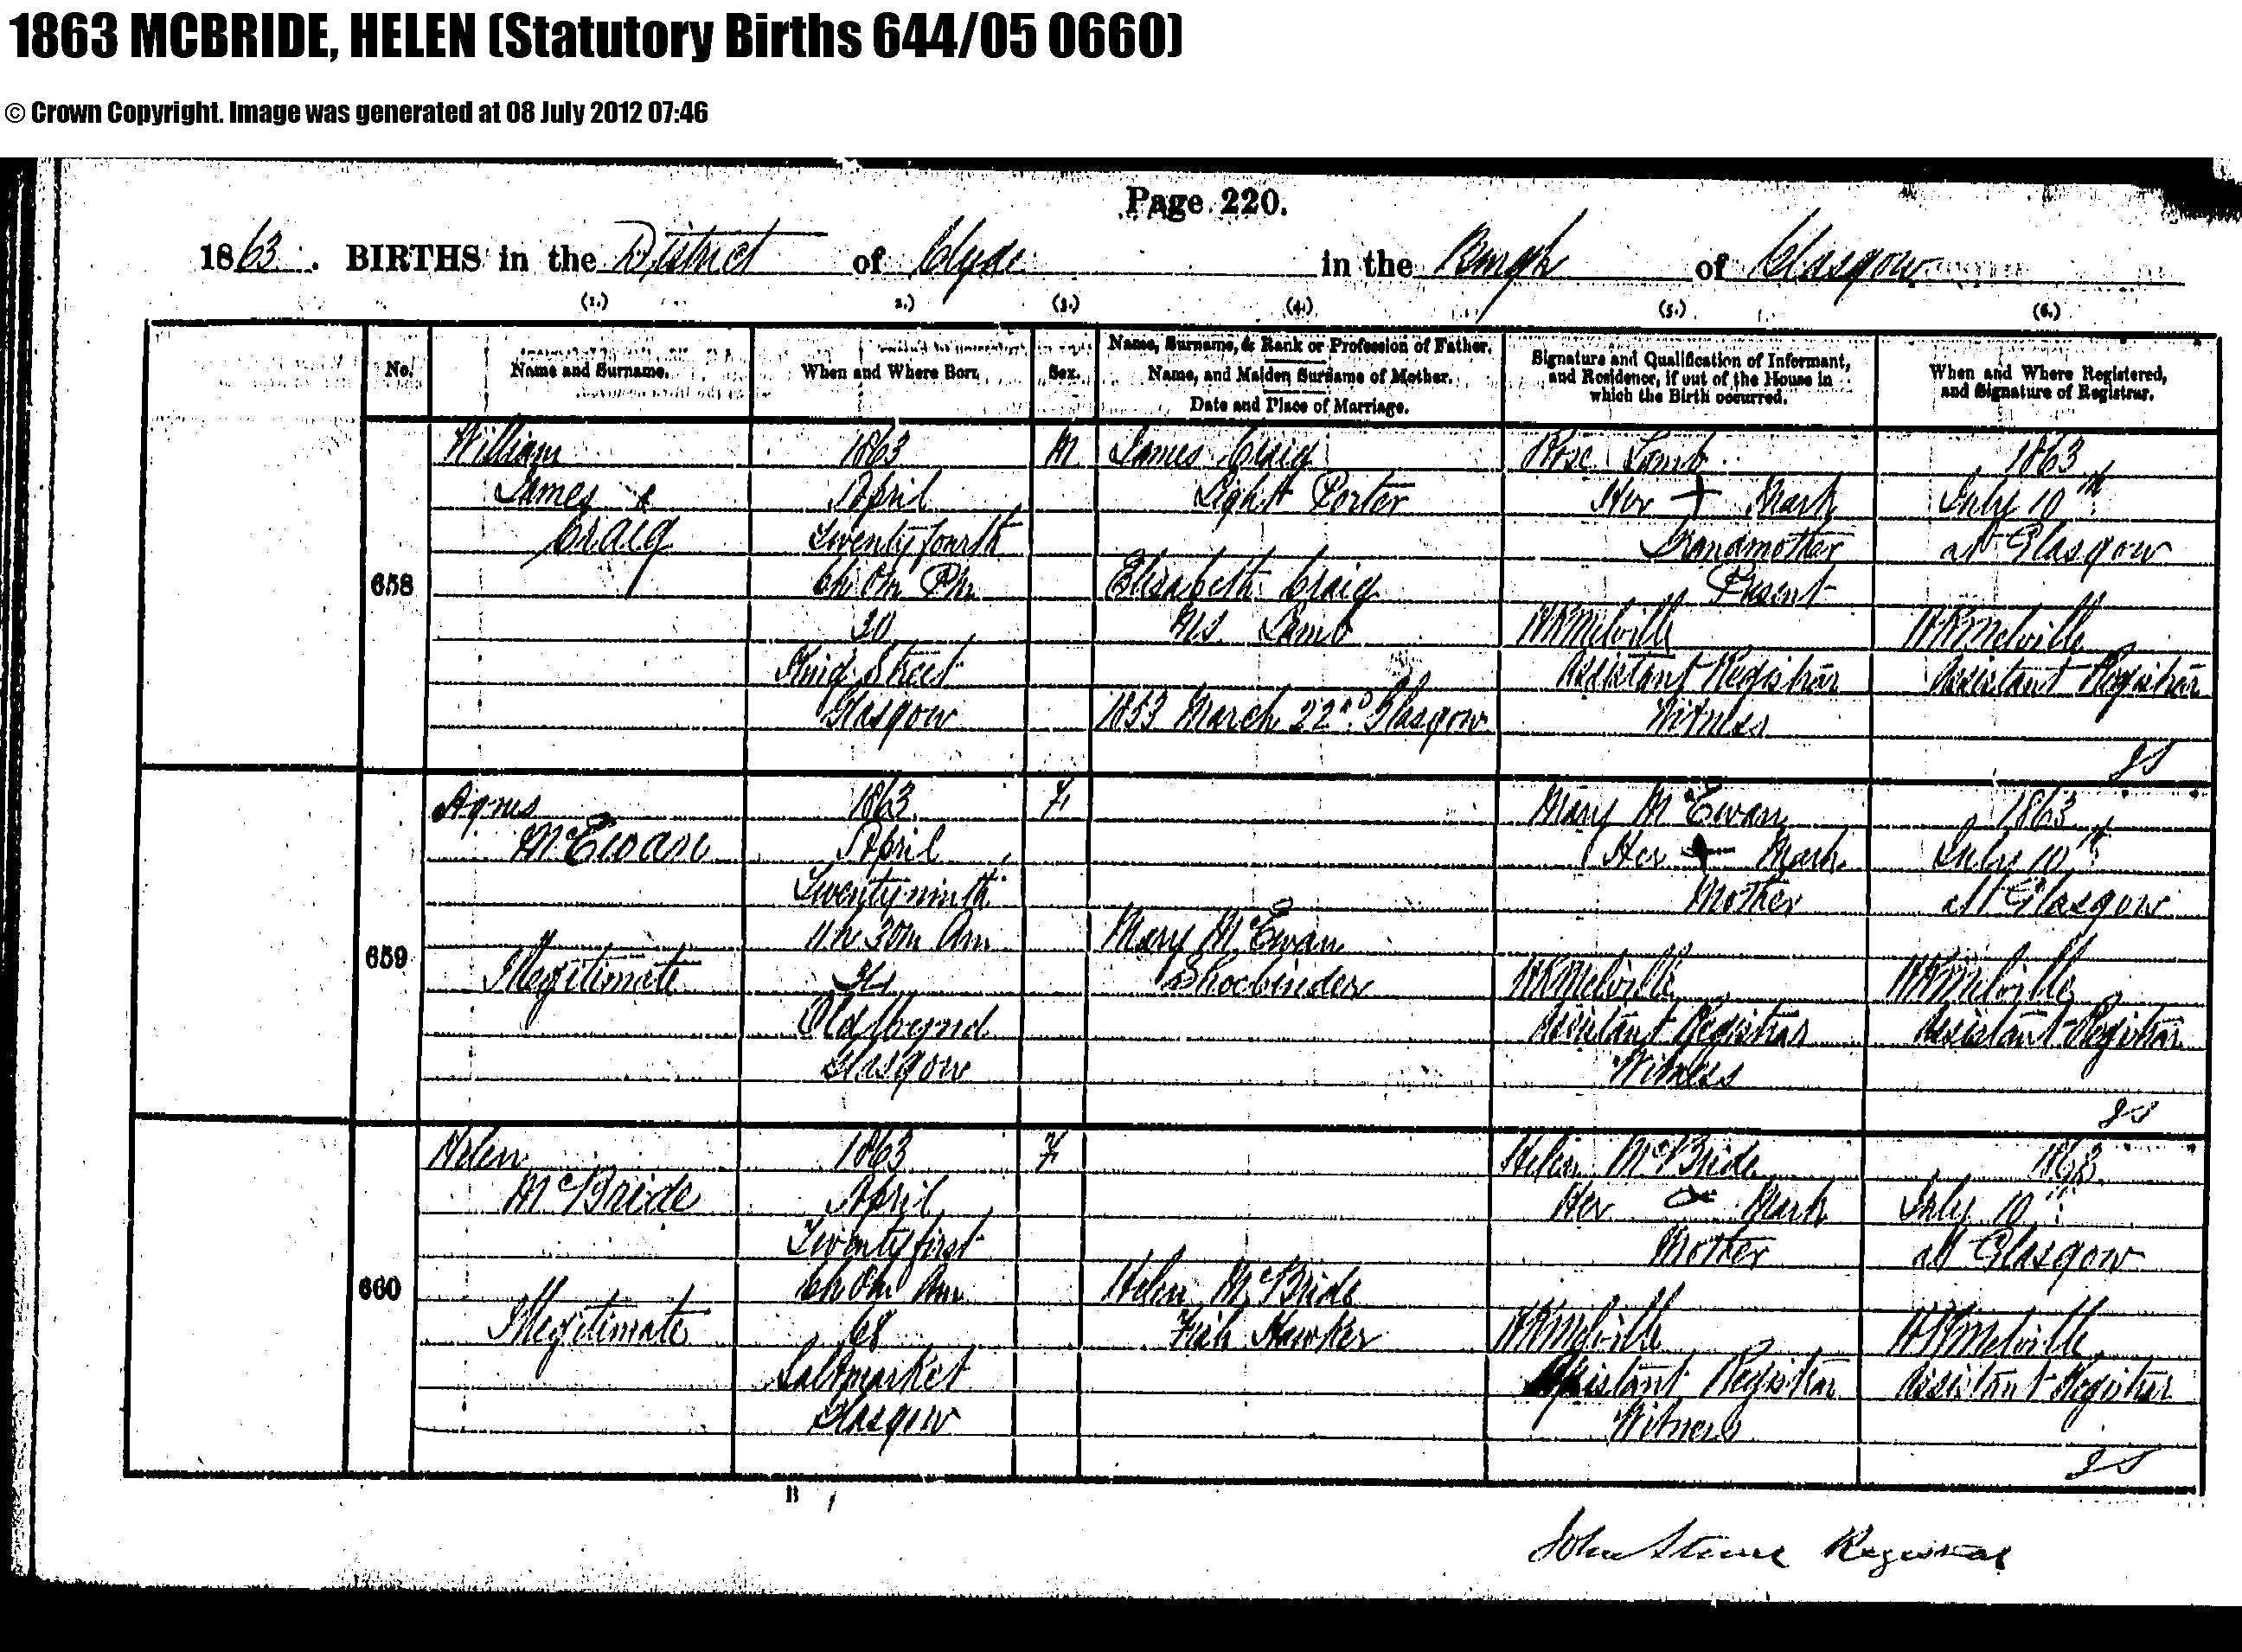 1863 MCBRIDE, HELEN (Statutory Births 644/05 0660)
© Crown Copyright. Image was generated at 08 July 2012 07:46
Page 220.
1863. BIRTHS in the District of Clyde in the Burgh of Glasgow
(1.) 2.) (3.) (4.) (5.) (6.)
No.
Name and Surname.
When and Where Born.
Sex.
Name, Surname, & Rank or Profession of Father.
Name, and Maiden Surname of Mother.
Date and Place of Marriage.
Signature and Qualification of Informant,
and Residence, if out of the House in
which the Birth occurred.
When and Where Registered,
and Signature of Registrar.
658
William
James
Craig
1863
April
Twenty fourth
6h 0m PM
30
King Street
Glasgow
M
James Craig
Light Porter
Elisabeth Craig
MS Lamb
1853 March 22nd Glasgow
Rose Lamb
Her + Mark
Grandmother
Present
WKMelville
Assistant Registrar
Witness
1863
July 10th
at Glasgow
WKMelville
Assistant Registrar
JS
659
Agnes
McEwan
Illegitimate
1863
April
Twenty ninth
11h 30m Am
Old Wynd
Glasgow
F
Mary McEwan
Shoebinder
Mary McEwan
Her + Mark
Mother
WKMelville
Assistant Registrar
Witness
1863
July 10th
at Glasgow
WKMelville
Assistant Registrar
JS
660
Helen
McBride
Illegitimate
1863
April
Twenty first
6h 0m Am
68
Saltmarket
Glasgow
F
Helen McBride
Fish Hawker
Helen McBride
Her Mark
Mother
WKMelville
Assistant Registrar
Witness
1863
July 10th
at Glasgow
WKMelville
Assistant Registrar
JS
B
John Registrar